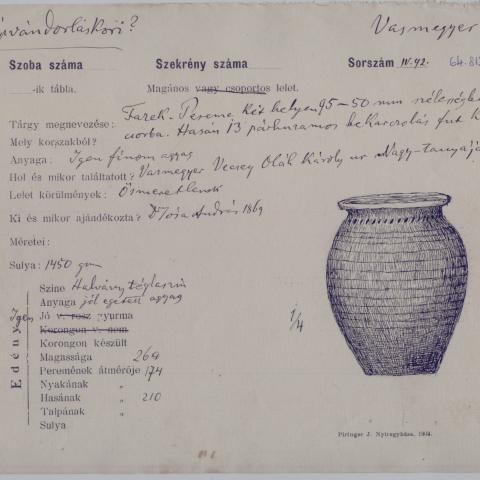 népvándorláskori? Vasmegyer
Szoba száma Szekrény száma Sorszám IV.42. 64.813
-ik tábla. Magános vagy csoportos lelet.
Tárgy megnevezése: Fazék. Pereme két helyen 95–50 mm szélességben
Mely korszakból? csorba. Hasán 13 párhuzamos bekarczolás fut k
Anyaga: Igen finom agyag
Hol és mikor találtatott? Vasmegyer Vecsey Oláh Károly ur Nagy-tanyáj
Lelet körülmények: Ösmeretlenek
Ki és mikor ajándékozta? Dr Jósa András 1869
Méretei:
Sulya: 1450 gm
Edény
Szine Halvány téglaszin
Anyaga jól égetett agyag
Igen Jó v. rosz gyurma
Korongon v. nem
Korongon készült
Magassága 264
Peremének átmérője 174
Nyakának "
Hasának " 210
Talpának "
Sulya
1/4
Piringer J. Nyiregyháza.